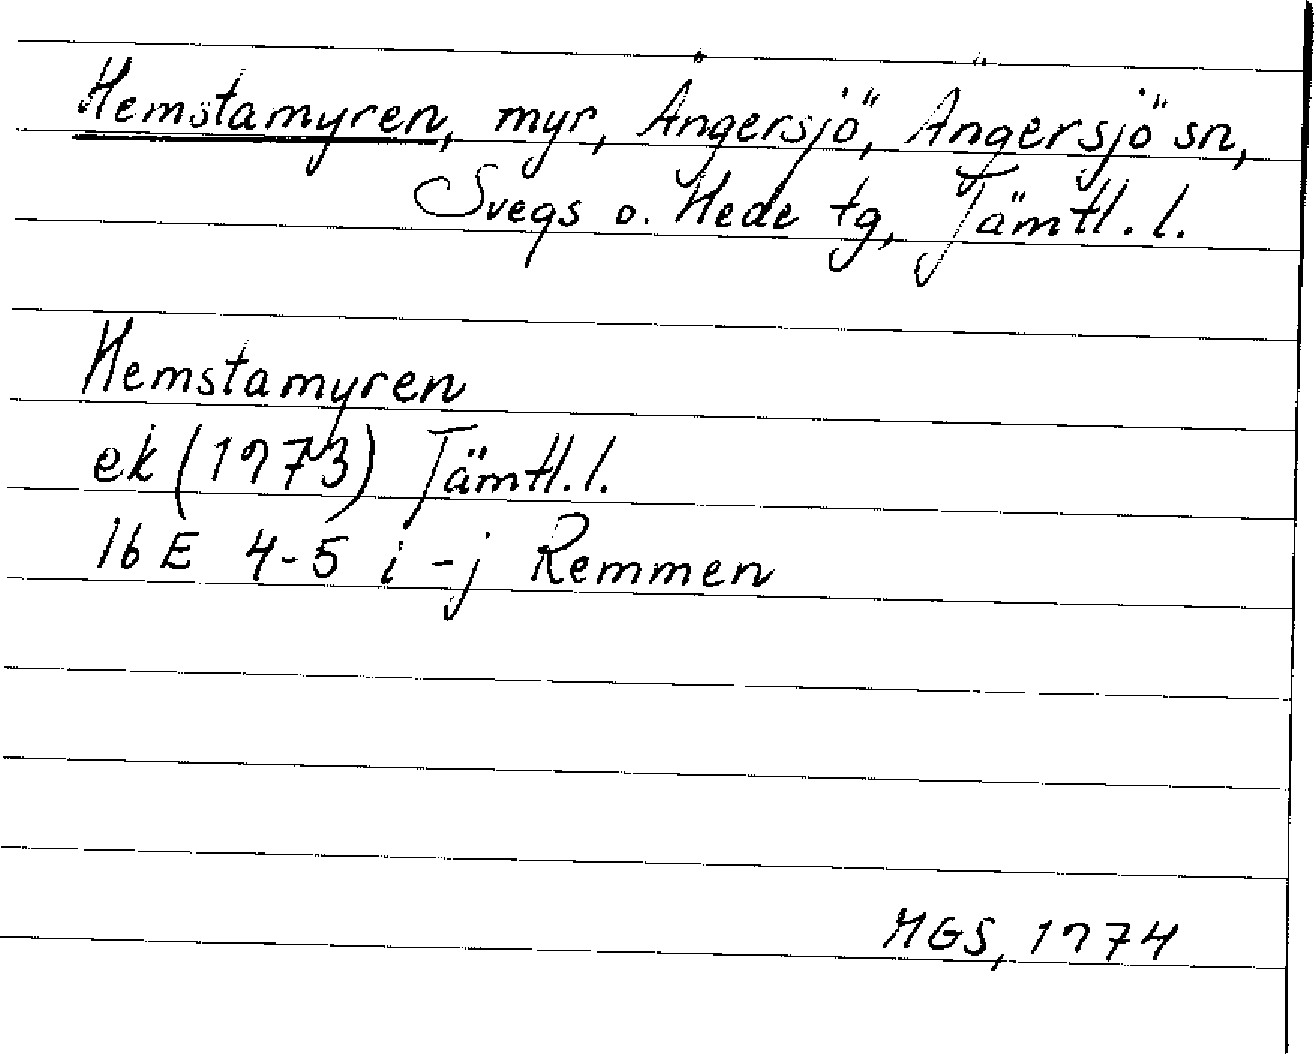 Hemstamyren, myr, Ångersjö, Ängersjö sn,
Svegs o. Hede tg, Jämtl. l.
Hemstamyren
ek (1973) Jämtl. l.
16 E 4-5 i-j Remmen
MGS, 1974